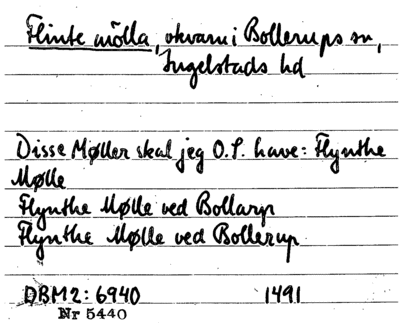 Flinte mölla, vkvarn i Bollerups sn,
Ingelstads hd
Disse Møller skal jeg O.S. have: Flynthe
Mølle
Flynthe Mølle ved Bollarp
Flynthe Mølle ved Bollerup
DBM2: 6940 1491
Nr 5440